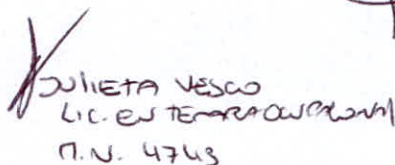 JULIETA VESCO
LIC. EN TERAPIA OCUPACIONAL
M.N. 4743